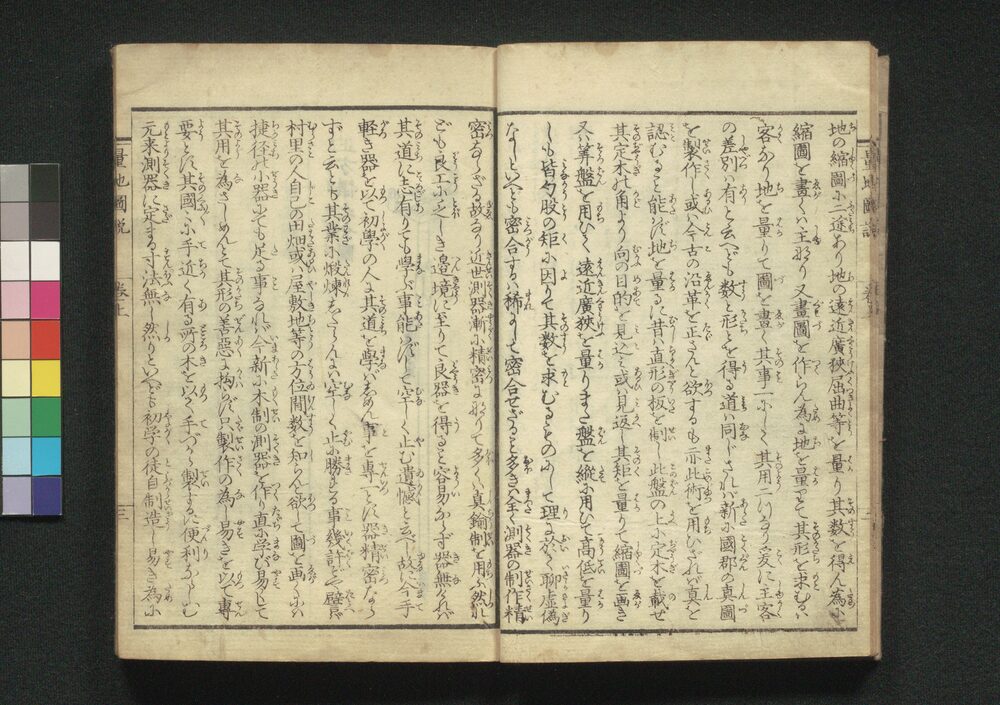 地の縮圖に二途あり地の遠近廣狭屈曲等を量り其数を得ん為に
縮圖を畫くハ主なり又畫圖を作らん為に地を量るて其形を求むるハ
客なり地を量りて圖を畫く其事一にして其用二つなり爰に主客
の差別ハ有と云へども数と形とを得る道ハ同じされバ新に國郡の真圖
を製作し或ハ今古の沿革を正さんと欲するも亦此術を用ひざれバ真を
認むると能はず地を量るに昔ハ直形の板を制し此盤の上に定木を載せ
其定木の角より向の目的を見込ミ或ハ見返し其矩を量りて縮圖を画き
又ハ算盤を用ひて遠近廣狭を量りまた盤を縦に用ひて高低を量り
しも皆勾股の矩に因りて其数を求むるものにして理に於て聊虚偽
なしといへども密合するハ稀にして密合せざると多きハ全く測器の制作精
密ならざる故なり近世測器漸に精密になりて多くハ真鍮制を用ふ然れ
ども良工に乏しき邉境に至りて良器を得ると容易からず器無れバ
其道に志有りても學ぶ事能はずして空しく止む遺憾と云べし故に今手
軽き器を以て初學の人に其道を學バしめん事を専とす器精密なら
ずと云とも其業に煅煉をとんハ空しく止に勝まる事幾許ぞや譬バ
村里の人自己の田畑或ハ屋敷地等の方位間数を知らんと欲して圖を画くにハ
捷径の小器にても足る事なれバ今新に木制の測器を作り直に学び易くして
其用を為さしめんとて其形の善惡に拘らず只製作の為し易きを以て専
要とす其國々に手近く有る所の木を以て手づから製するに便利ならしむ
元来測器に定まる寸法無し然りといへども初学の徒自制造し易き為に
量地圖説
巻上
三